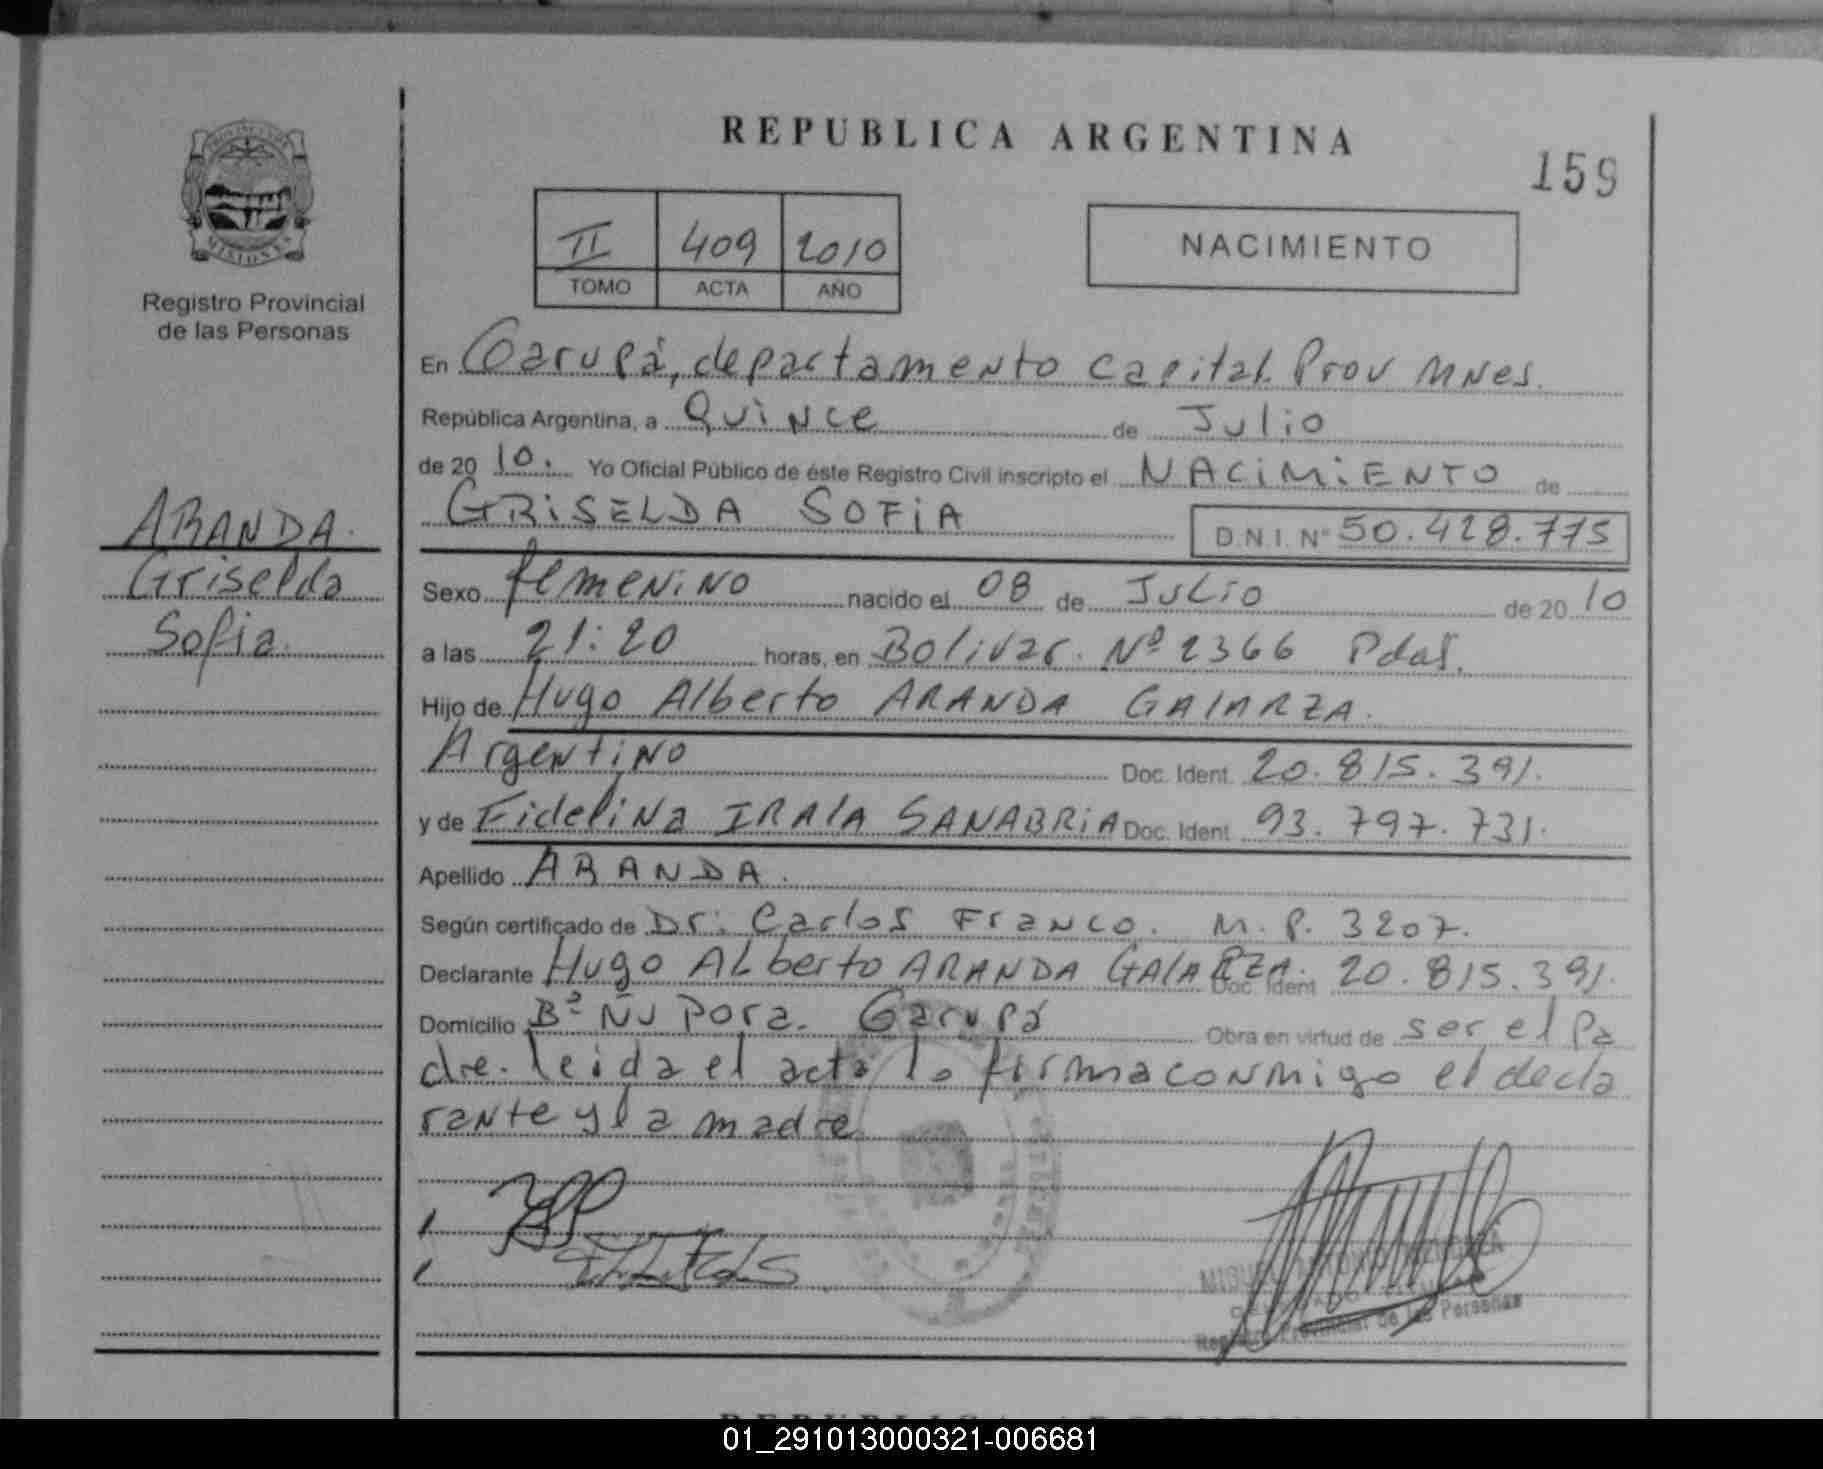 REPUBLICA ARGENTINA
159
PROVINCIA DE
MISIONES
Registro Provincial
de las Personas
II 409 2010
TOMO ACTA AÑO
NACIMIENTO
En Garupá, departamento Capital. Prov Mnes.
República Argentina, a Quince de Julio
de 20 10. Yo Oficial Público de éste Registro Civil inscripto el NACIMIENTO de
GRISELDA SOFIA D.N.I. Nº 50.428.775
ARANDA.
Griselda
Sofia.
Sexo femenino nacido el 08 de Julio de 20 10
a las 21:20 horas, en Bolivar. Nº 2366 Pdas.
Hijo de Hugo Alberto ARANDA GALARZA.
Argentino Doc. Ident. 20.815.391.
y de Fidelina IRALA SANABRIA Doc. Ident. 93.797.731.
Apellido ARANDA.
Según certificado de Dr. Carlos Franco. M.P. 3207.
Declarante Hugo ALberto ARANDA GALARZA. Doc. Ident 20.815.391.
Domicilio Bº Ñu Pora. Garupá Obra en virtud de ser el Pa
dre. leida el acta la firma conmigo el decla
rante y la madre
MIGUEL
Registro Provincial de las Personas
REPUBLICA ARGENTINA
01_291013000321-006681